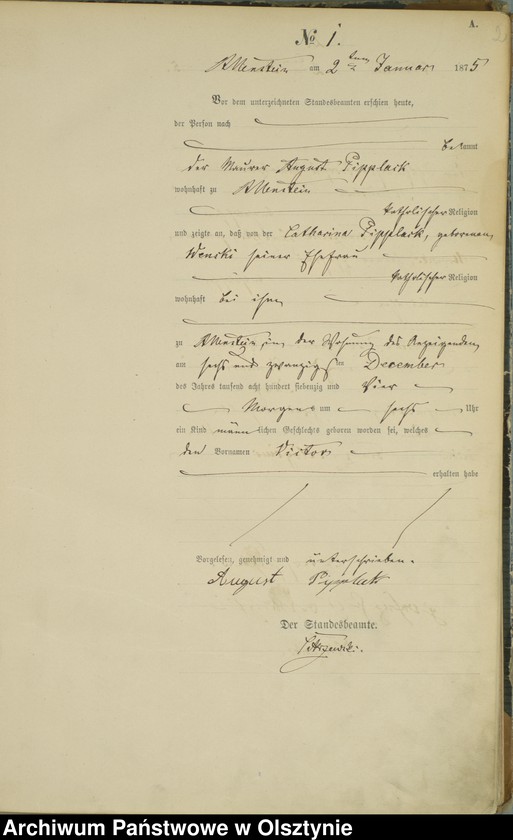 A.
2
No 1.
Allenstein am 2ten Januar 1875
Vor dem unterzeichneten Standesbeamten erschien heute,
der Person nach
bekannt
der Maurer August Pipplack
wohnhaft zu Allenstein
katholischer Religion
und zeigte an, daß von der Catharina Pipplack, geborenen
Wenski seiner Ehefrau
katholischer Religion
wohnhaft bei ihm
zu Allenstein, in der Wohnung des Anzeigenden
am sechs und zwanzigsten December
des Jahres tausend acht hundert siebenzig und vier
Morgens um sechs Uhr
ein Kind männlichen Geschlechts geboren worden sei, welches
den Vornamen Victor
erhalten habe
Vorgelesen, genehmigt und unterschrieben.
August Pypplatt
Der Standesbeamte.
Archiwum Państwowe w Olsztynie